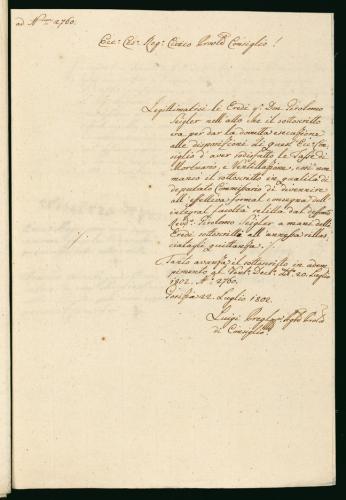 ad Nrum 2760.
Ecc. Ces. Reg. Civico Provle Consiglio!
Legittimatisi le Eredi q. Don Girolomo
Seigler nell'atto che il sottoscritto
era per dar la dovuta esecuzione
alle disposizioni di quest' Ecc. Con-
siglio d'aver sodisfatto le Tasse di
Mortuario, e Ventillazione, così non
mancò il sottoscritto in qualità di
deputato Commissario di divennire
all' effettiva formal consegna dell'
integral facoltà relitta dal
q. Girolomo Seigler a mani delle
Eredi sottoscritte all' annessa rillas-
ciatagli quittanza ./.
Tanto avanza il sottoscritto in adem-
pimento al Decr. 20. Luglio
1802. No. 2760.
Gorizia 22. Luglio 1802.
Luigi
di Consiglio